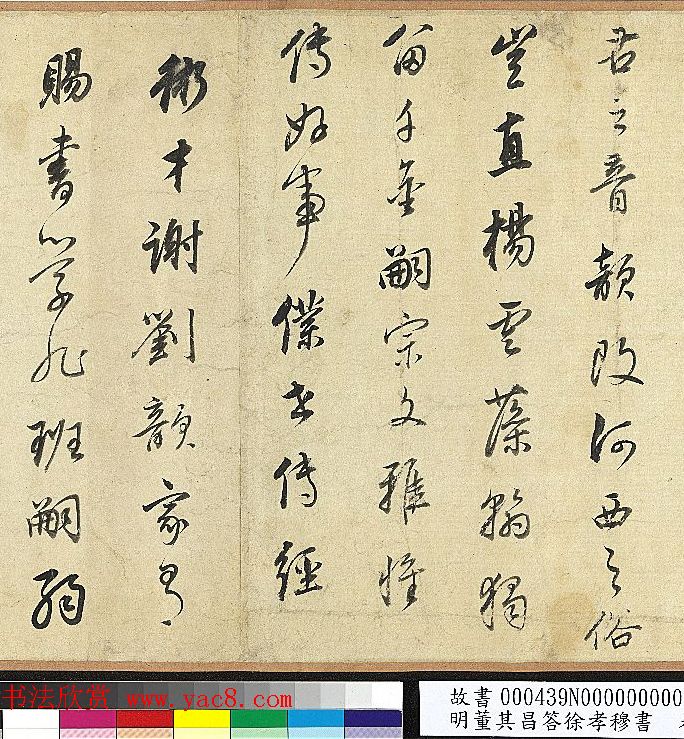 君之音韻改河西之俗
豈直楊雲藻翰獨
留千金嗣宗文雅惟
傳好事僕世傳經
術才謝劉歆家有
賜書學非班嗣弱
书法欣赏 www.yac8.com
故書 000439N000000000
明董其昌答徐孝穆書